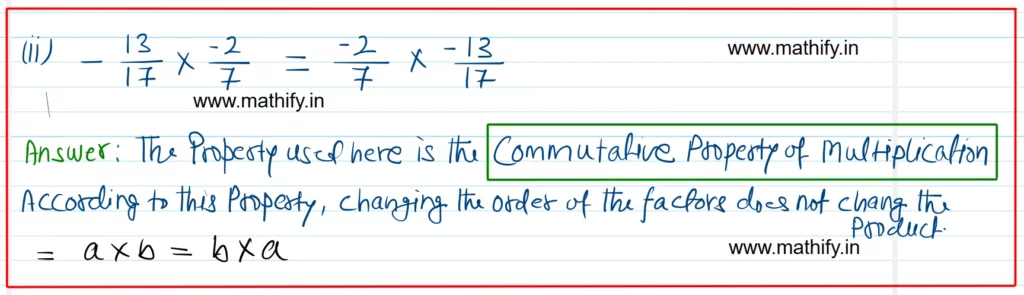 (ii) - 13/17 × -2/7 = -2/7 × -13/17 www.mathify.in
www.mathify.in
Answer: The Property used here is the Commutative Property of Multiplication
According to this Property, changing the order of the factors does not chang the
Product.
= a × b = b × a www.mathify.in